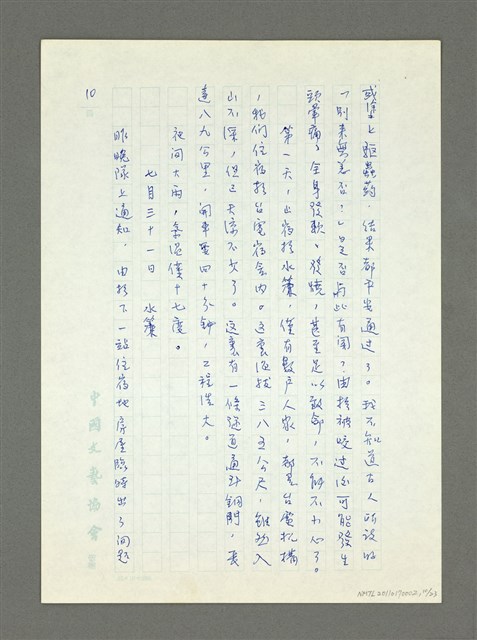 或塗上驅蟲葯，結果都平安通過了。我不知道古人所說的
「別來無恙否？」是否與此有關？由於被咬過後可能發生
頭暈痛、全身發軟、發燒，甚至足以致命，不能不小心了。
第一天，止宿於水簾，僅有數戶人家，都是台電機構
，我們住宿於台電宿舍內。這裏海拔三八五公尺，雖然入
山不深，但已大涼不少了。這裏有一條隧道通到銅門，長
達八九公里，開車要四十分鐘，工程浩大。
夜间大雨，氣溫僅十七度。
七月三十一日 水簾
昨晚隊上通知，由於下一站住宿地房屋臨時出了问題
10
中國文藝協會
NMTL20110170002, 11/23